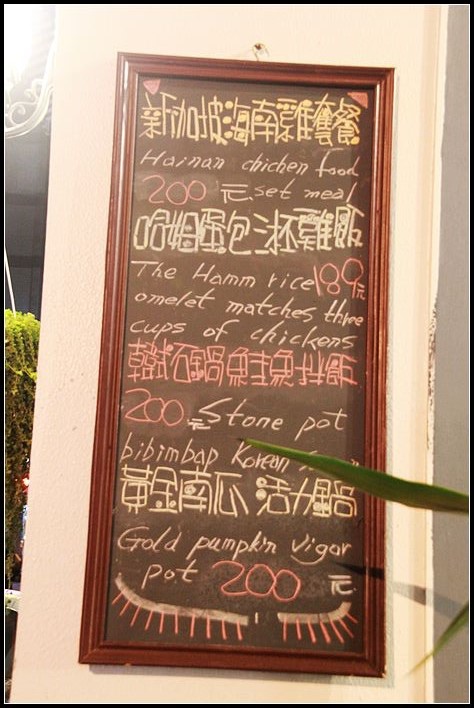 新加坡海南雞套餐
Hainan chichen food
200元.set meal
哈姆蛋包三杯雞飯
The Hamm rice 189元
omelet matches three
cups of chickens
韓式石鍋鮭魚拌飯
200元 Stone pot
bibimbap Korean
黃金南瓜活力鍋
Gold pumpkin vigor
pot 200元